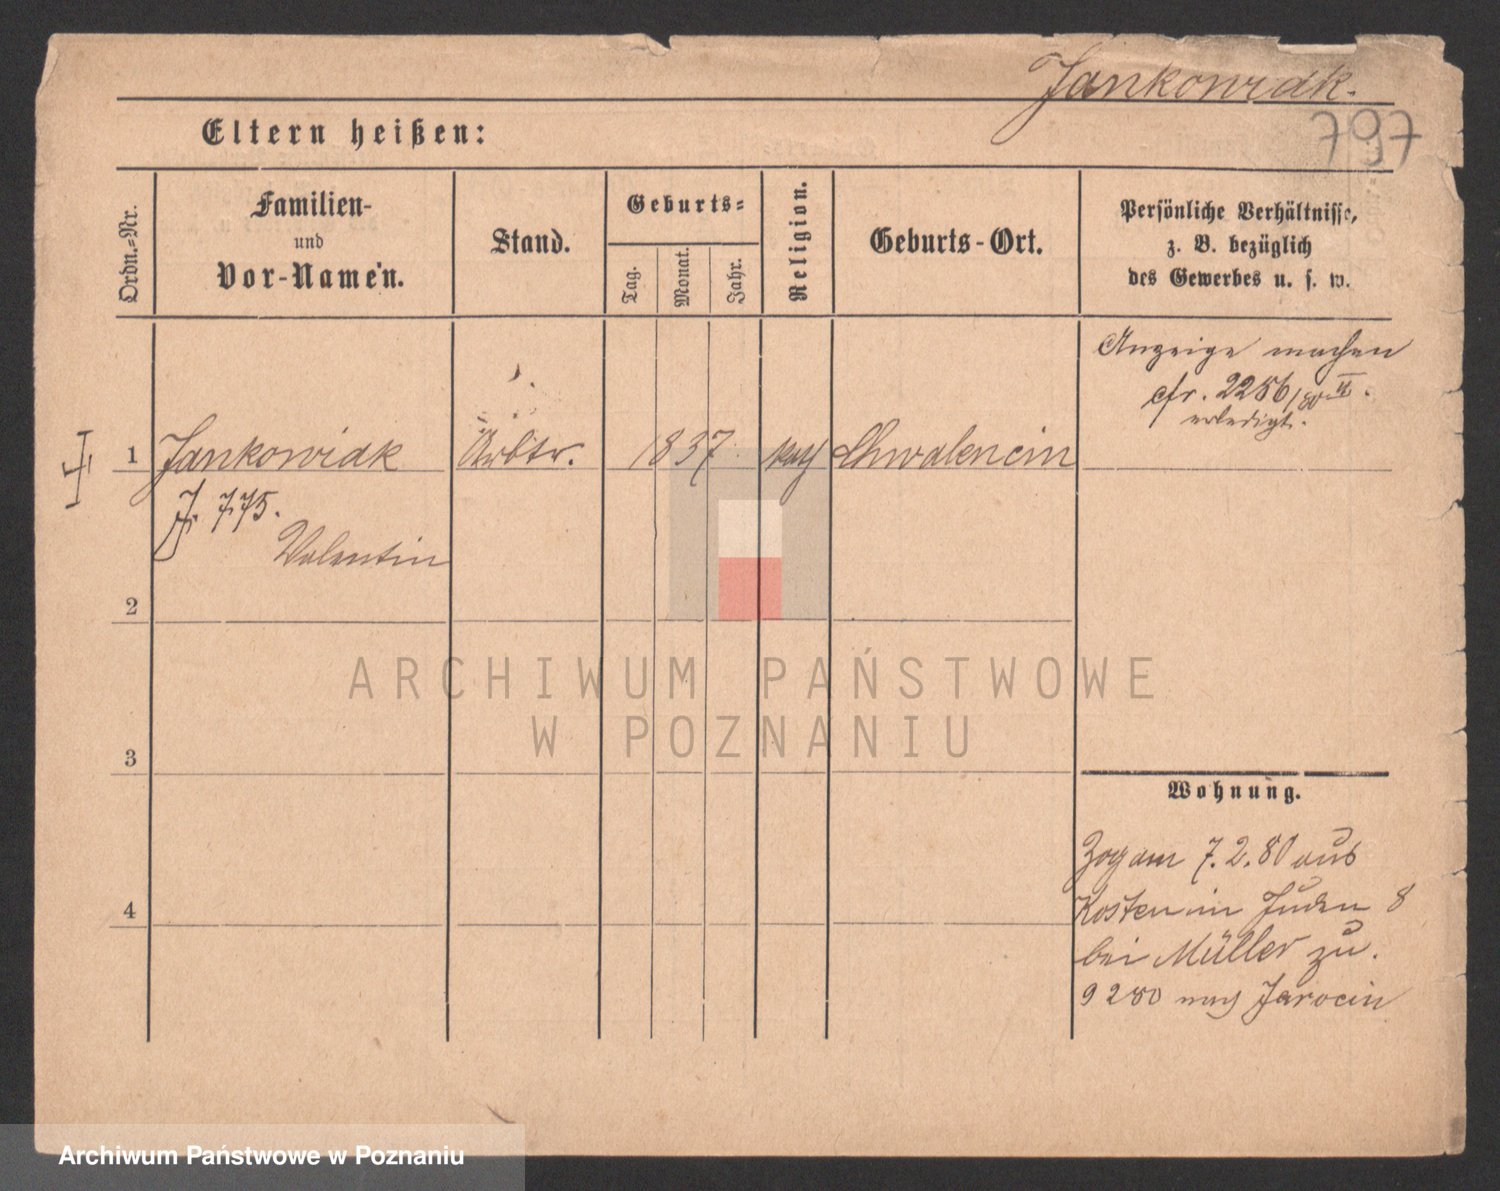 Jankowiak.
797
Eltern heißen:
Ordn.=Nr.
Familien-
und
Vor-Namen.
Stand.
Geburts=
Tag.
Monat.
Jahr.
Religion.
Geburts-Ort.
Persönliche Verhältnisse,
z. B. bezüglich
des Gewerbes u. s. w.
Anzeige machen
cfr. 2256/80 II.
erledigt.
1 Jankowiak Arbtr. 1837 kath Chwalencin
J. 775.
Valentin
2
3
4
Wohnung.
Zog am 7.2.80 aus
Kosten in Juden 8
bei Müller zu.
9 2 80 nach Jarocin
ARCHIWUM PAŃSTWOWE
W POZNANIU
Archiwum Państwowe w Poznaniu